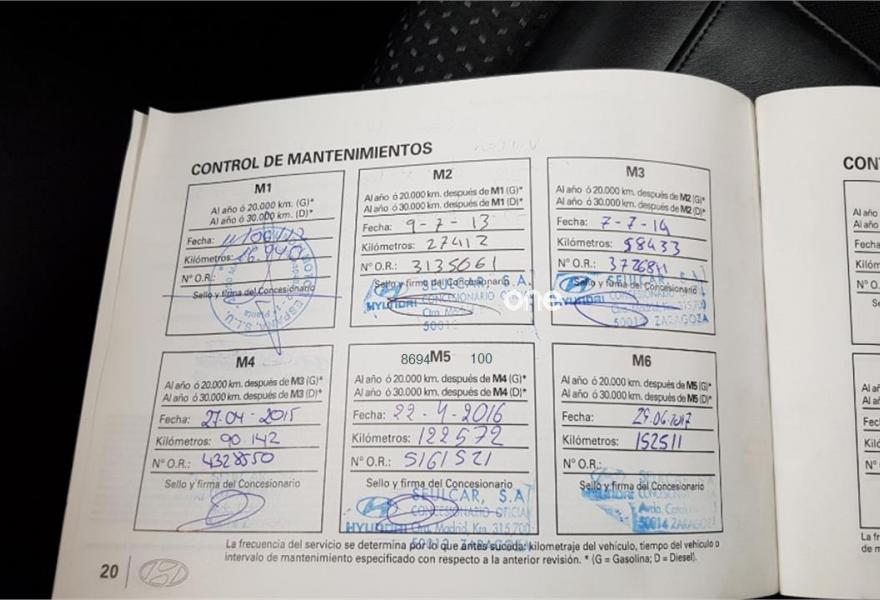 CONTROL DE MANTENIMIENTOS
M1
Al año ó 20.000 km. (G)*
Al año ó 30.000 km. (D)*
Fecha:
Kilómetros:
N° O.R.:
Sello y firma del Concesionario
M2
Al año ó 20.000 km. después de M1 (G)*
Al año ó 30.000 km. después de M1 (D)*
Fecha: 9-7-13
Kilómetros: 27412
N° O.R.: 3135061
Sello y firma del Concesionario
SEULCAR, S.A.
HYUNDAI CONCESIONARIO
Ctra. Madrid,
M3
Al año ó 20.000 km. después de M2 (G)*
Al año ó 30.000 km. después de M2 (D)*
Fecha: 7-7-14
Kilómetros: 58433
N° O.R.:
Sello y firma del Concesionario
SEULCAR, S.A.
HYUNDAI
50012 ZARAGOZA
one
M4
Al año ó 20.000 km. después de M3 (G)*
Al año ó 30.000 km. después de M3 (D)*
Fecha: 27-04-2015
Kilómetros: 90.142
N° O.R.: 4328550
Sello y firma del Concesionario
8694 M5 100
Al año ó 20.000 km. después de M4 (G)*
Al año ó 30.000 km. después de M4 (D)*
Fecha: 22-4-2016
Kilómetros: 122572
N° O.R.: 5161521
Sello y firma del Concesionario
SEULCAR, S.A.
CONCESIONARIO OFICIAL
HYUNDAI Ctra. Madrid, Km. 315,700
50012 ZARAGOZA
M6
Al año ó 20.000 km. después de M5 (G)*
Al año ó 30.000 km. después de M5 (D)*
Fecha: 29.06.2017
Kilómetros: 152511
N° O.R.:
Sello y firma del Concesionario
50014 ZARAGOZA
La frecuencia del servicio se determina por lo que antes suceda: kilometraje del vehículo, tiempo del vehículo o
intervalo de mantenimiento especificado con respecto a la anterior revisión. * (G = Gasolina; D = Diesel).
20
CON
Al año
Al año
Fecha
Kilóm
N° O
Se